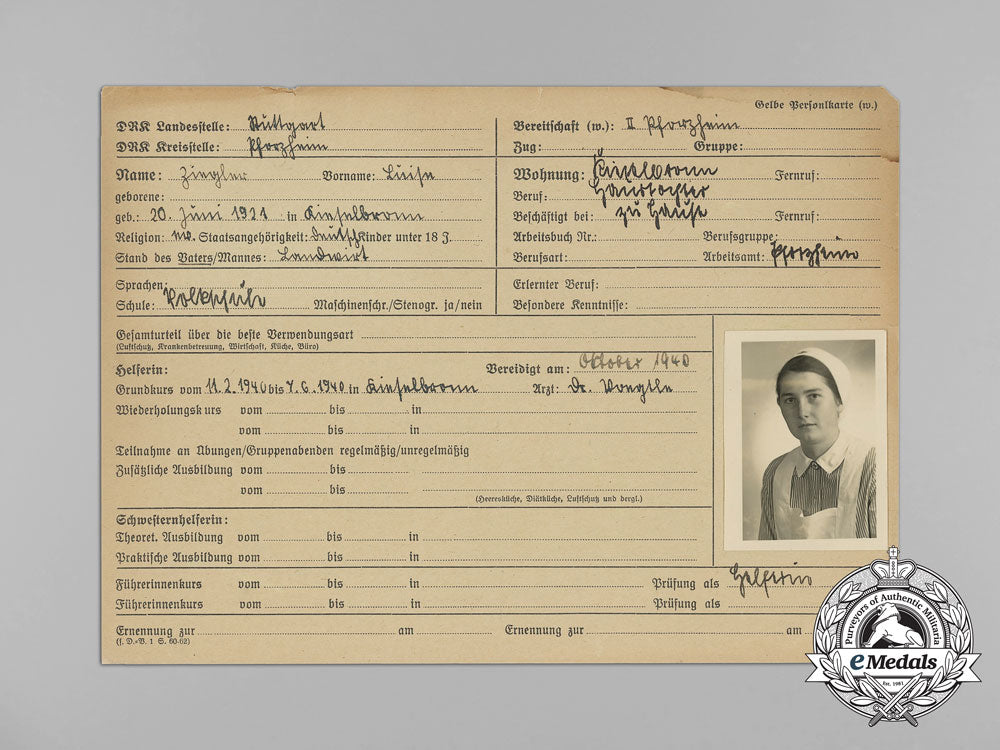 Gelbe Personlkarte (w.)
DRK Landesstelle: Stuttgart
DRK Kreisstelle: Pforzheim
Bereitschaft (w.): II Pforzheim
Zug: Gruppe:
Name: Ziegler Vorname: Luise
geborene:
geb.: 20. Juni 1921 in Kieselbronn
Religion: ev. Staatsangehörigkeit: Deutsch Kinder unter 18 J.
Stand des Vaters/Mannes: Landwirt
Wohnung: Kieselbronn Fernruf:
Beruf: Haustochter
Beschäftigt bei: zu Hause Fernruf:
Arbeitsbuch Nr.: Berufsgruppe:
Berufsart: Arbeitsamt: Pforzheim
Sprachen:
Schule: Volksschule Maschinenschr./Stenogr. ja/nein
Erlernter Beruf:
Besondere Kenntnisse:
Gesamturteil über die beste Verwendungsart
(Luftschutz, Krankenbetreuung, Wirtschaft, Küche, Büro)
Helferin: Vereidigt am: Oktober 1940
Grundkurs vom 11.2.1940 bis 7.6.1940 in Kieselbronn Arzt: Dr. Voegtle
Wiederholungskurs vom bis in
vom bis in
Teilnahme an Übungen/Gruppenabenden regelmäßig/unregelmäßig
Zusätzliche Ausbildung vom bis
vom bis
(Heeresküche, Diätküche, Luftschutz und dergl.)
Schwesternhelferin:
Theoret. Ausbildung vom bis in
Praktische Ausbildung vom bis in
Führerinnenkurs vom bis in Prüfung als Helferin
Führerinnenkurs vom bis in Prüfung als
Ernennung zur am Ernennung zur am
(f. D.-V. 1 S. 60-62)
Purveyors of Authentic Militaria
eMedals
Est. 1981